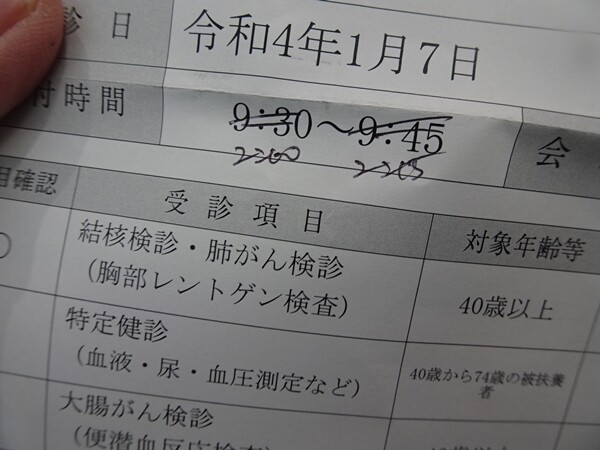 診日 令和4年1月7日
付時間 9:30～9:45 会
用確認 受診項目 対象年齢等
結核検診・肺がん検診
（胸部レントゲン検査） 40歳以上
特定健診
（血液・尿・血圧測定など） 40歳から74歳の被扶養者
大腸がん検診
（便潜血反応検査）